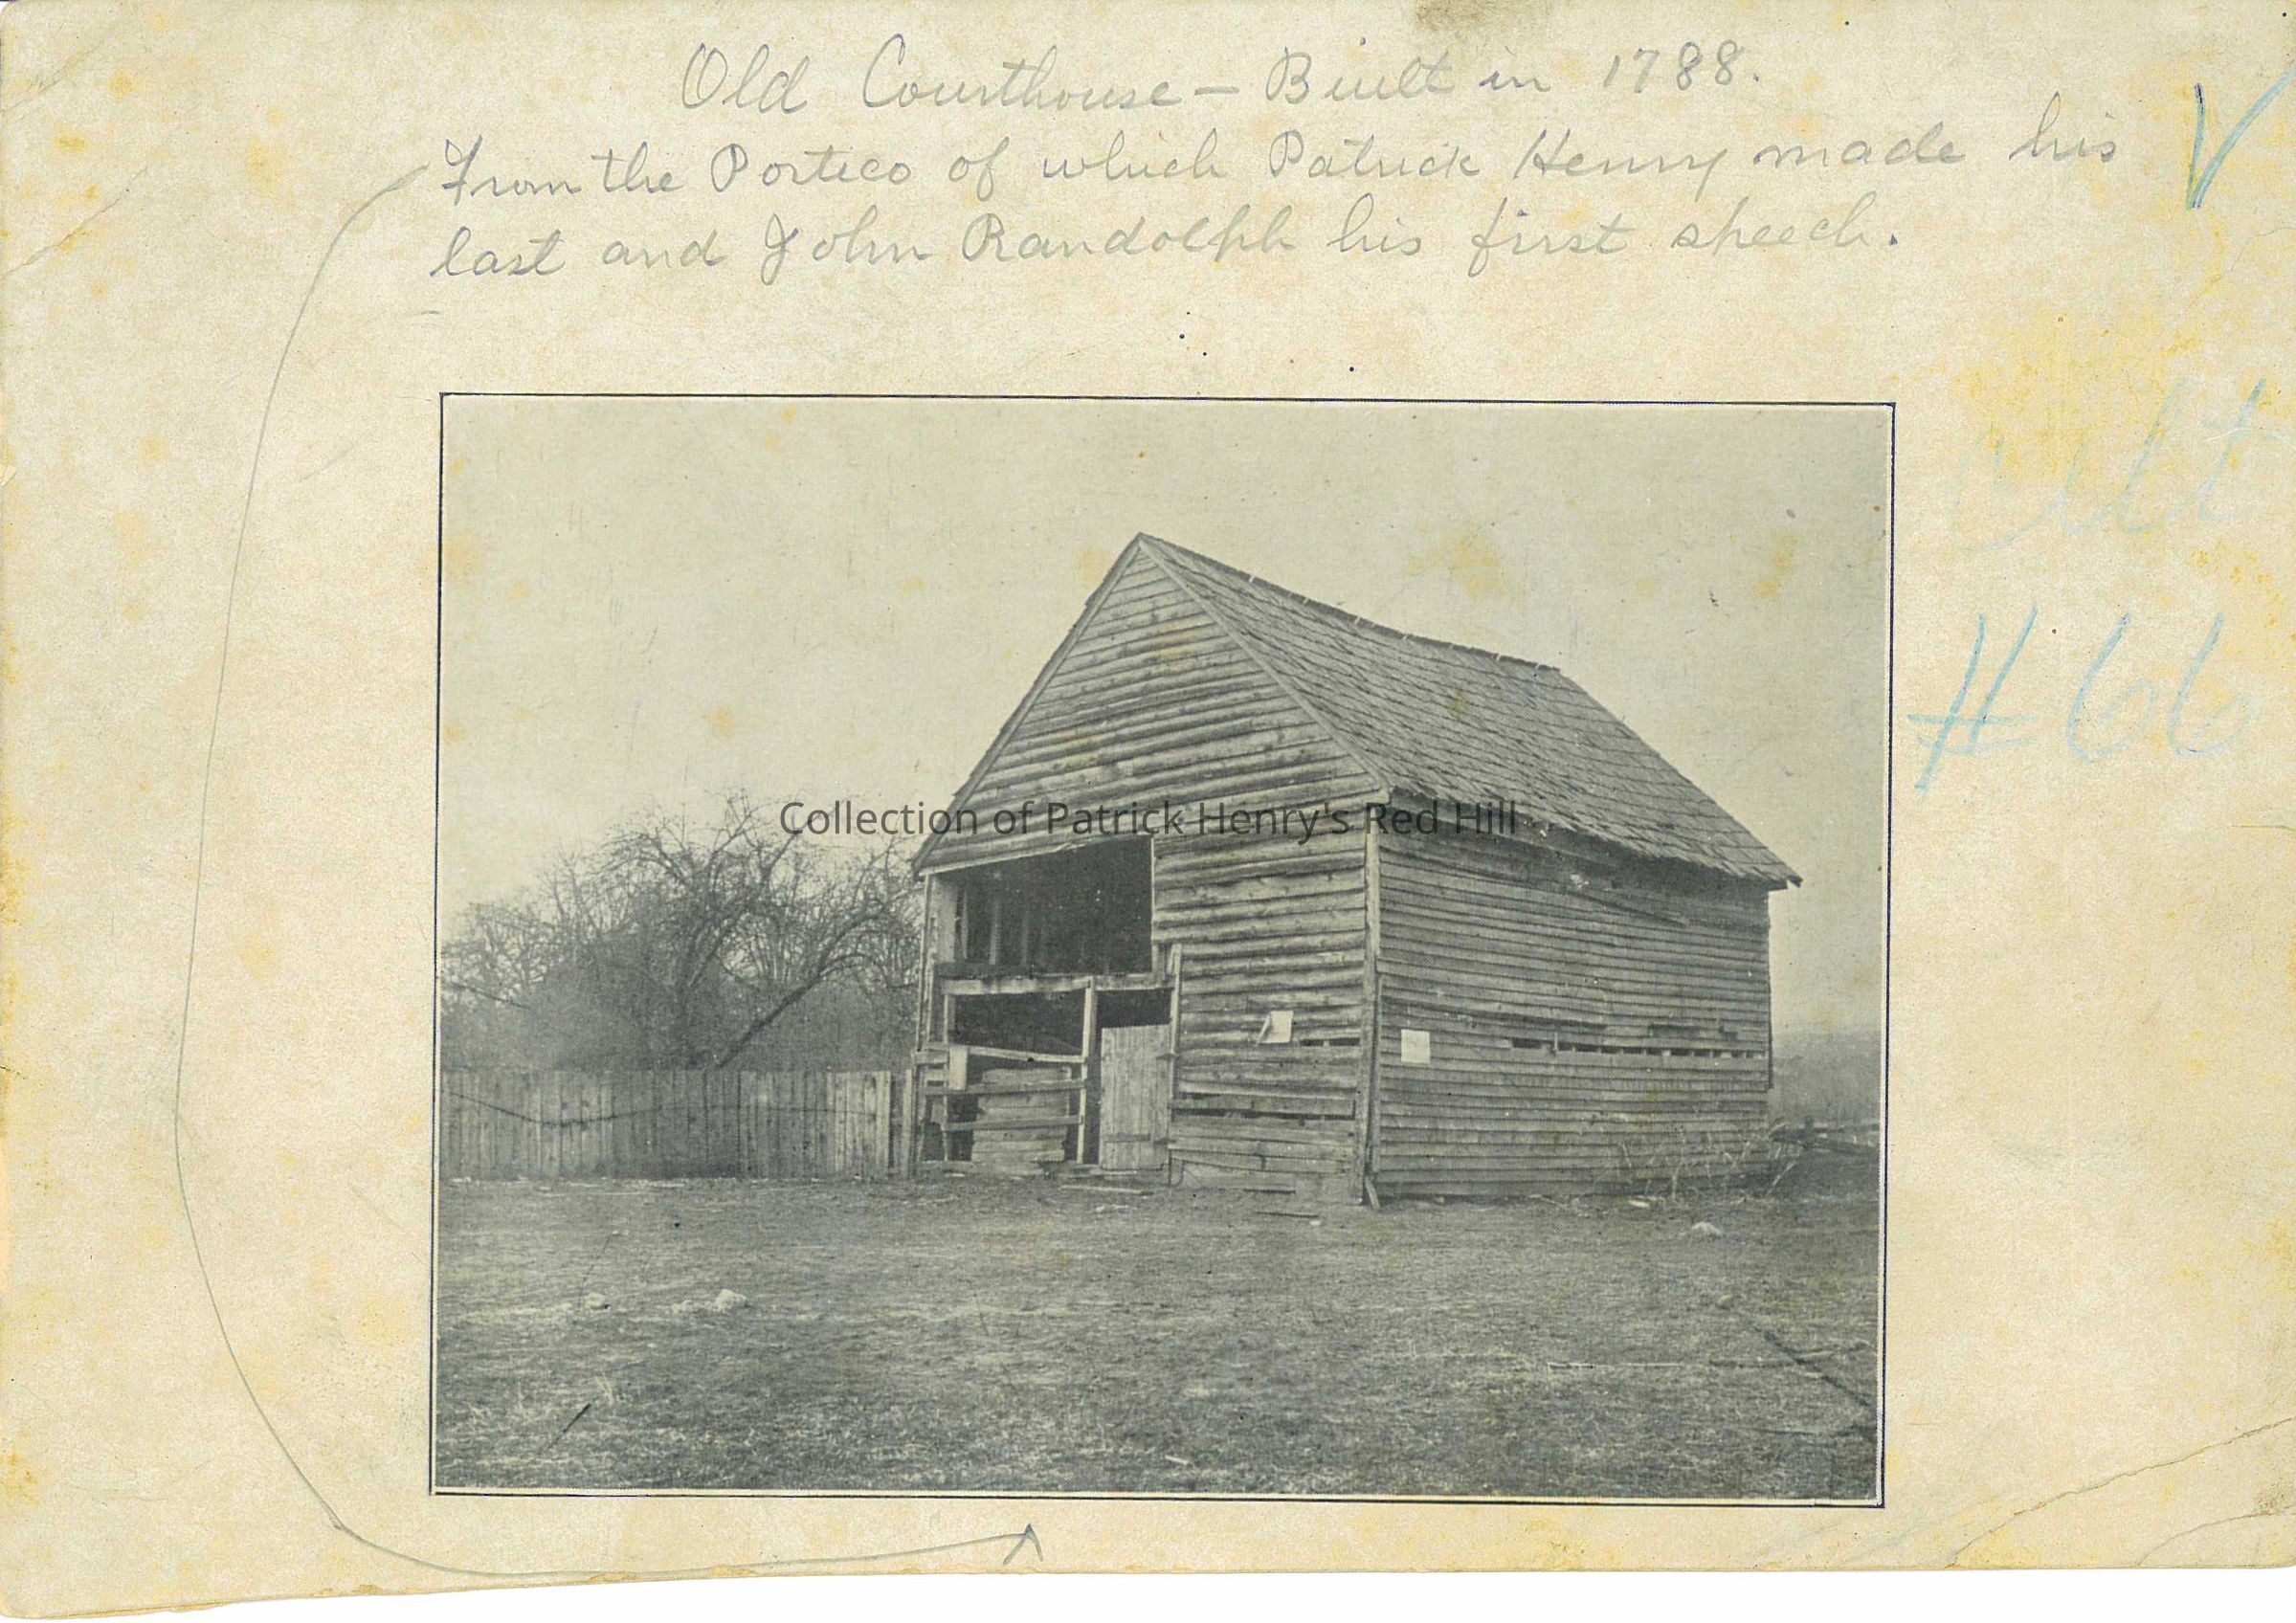 Old Courthouse – Built in 1788.
From the Portico of which Patrick Henry made his
last and John Randolph his first speech.
#66
Collection of Patrick Henry's Red Hill